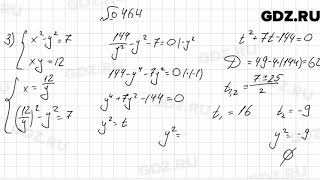 GDZ.RU
№ 464
3) { x² - y² = 7
xy = 12
{ x = 12/y
(12/y)² - y² = 7
144/y² - y² - 7 = 0 | · y²
144 - y⁴ - 7y² = 0 | · (-1)
y⁴ + 7y² - 144 = 0
y² = t
y² =
t² + 7t - 144 = 0
D = 49 - 4·(-144) = 62
t₁,₂ = 7 ± 25 / 2
t₁ = 16 t₂ = -9
y² = -9
∅